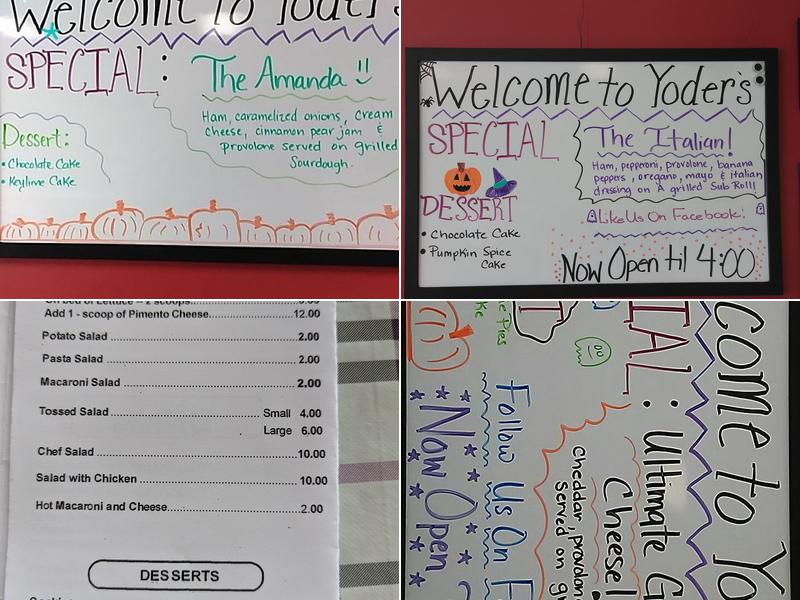 Welcome to Yoder's
SPECIAL:
The Amanda
Ham, caramelized onions, cream
cheese, cinnamon pear jam &
provolone served on grilled
Sourdough.
Dessert:
• Chocolate Cake
• Keylime Cake
Welcome to Yoder's
SPECIAL
The Italian!
Ham, pepperoni, provolone, banana
peppers, oregano, mayo & italian
dressing on A grilled Sub Roll!
DESSERT
• Chocolate Cake
• Pumpkin Spice
Cake
Like Us On Facebook!
Now Open til 4:00
On bed of Lettuce -- 2 scoops
Add 1 - scoop of Pimento Cheese 12.00
Potato Salad 2.00
Pasta Salad 2.00
Macaroni Salad 2.00
Tossed Salad Small 4.00
Large 6.00
Chef Salad 10.00
Salad with Chicken 10.00
Hot Macaroni and Cheese 2.00
DESSERTS
come to Yo
IAL:
Ultimate G
Cheese!
Cheddar, provolon
Served on gr
Pies
Follow Us On F
Now Open